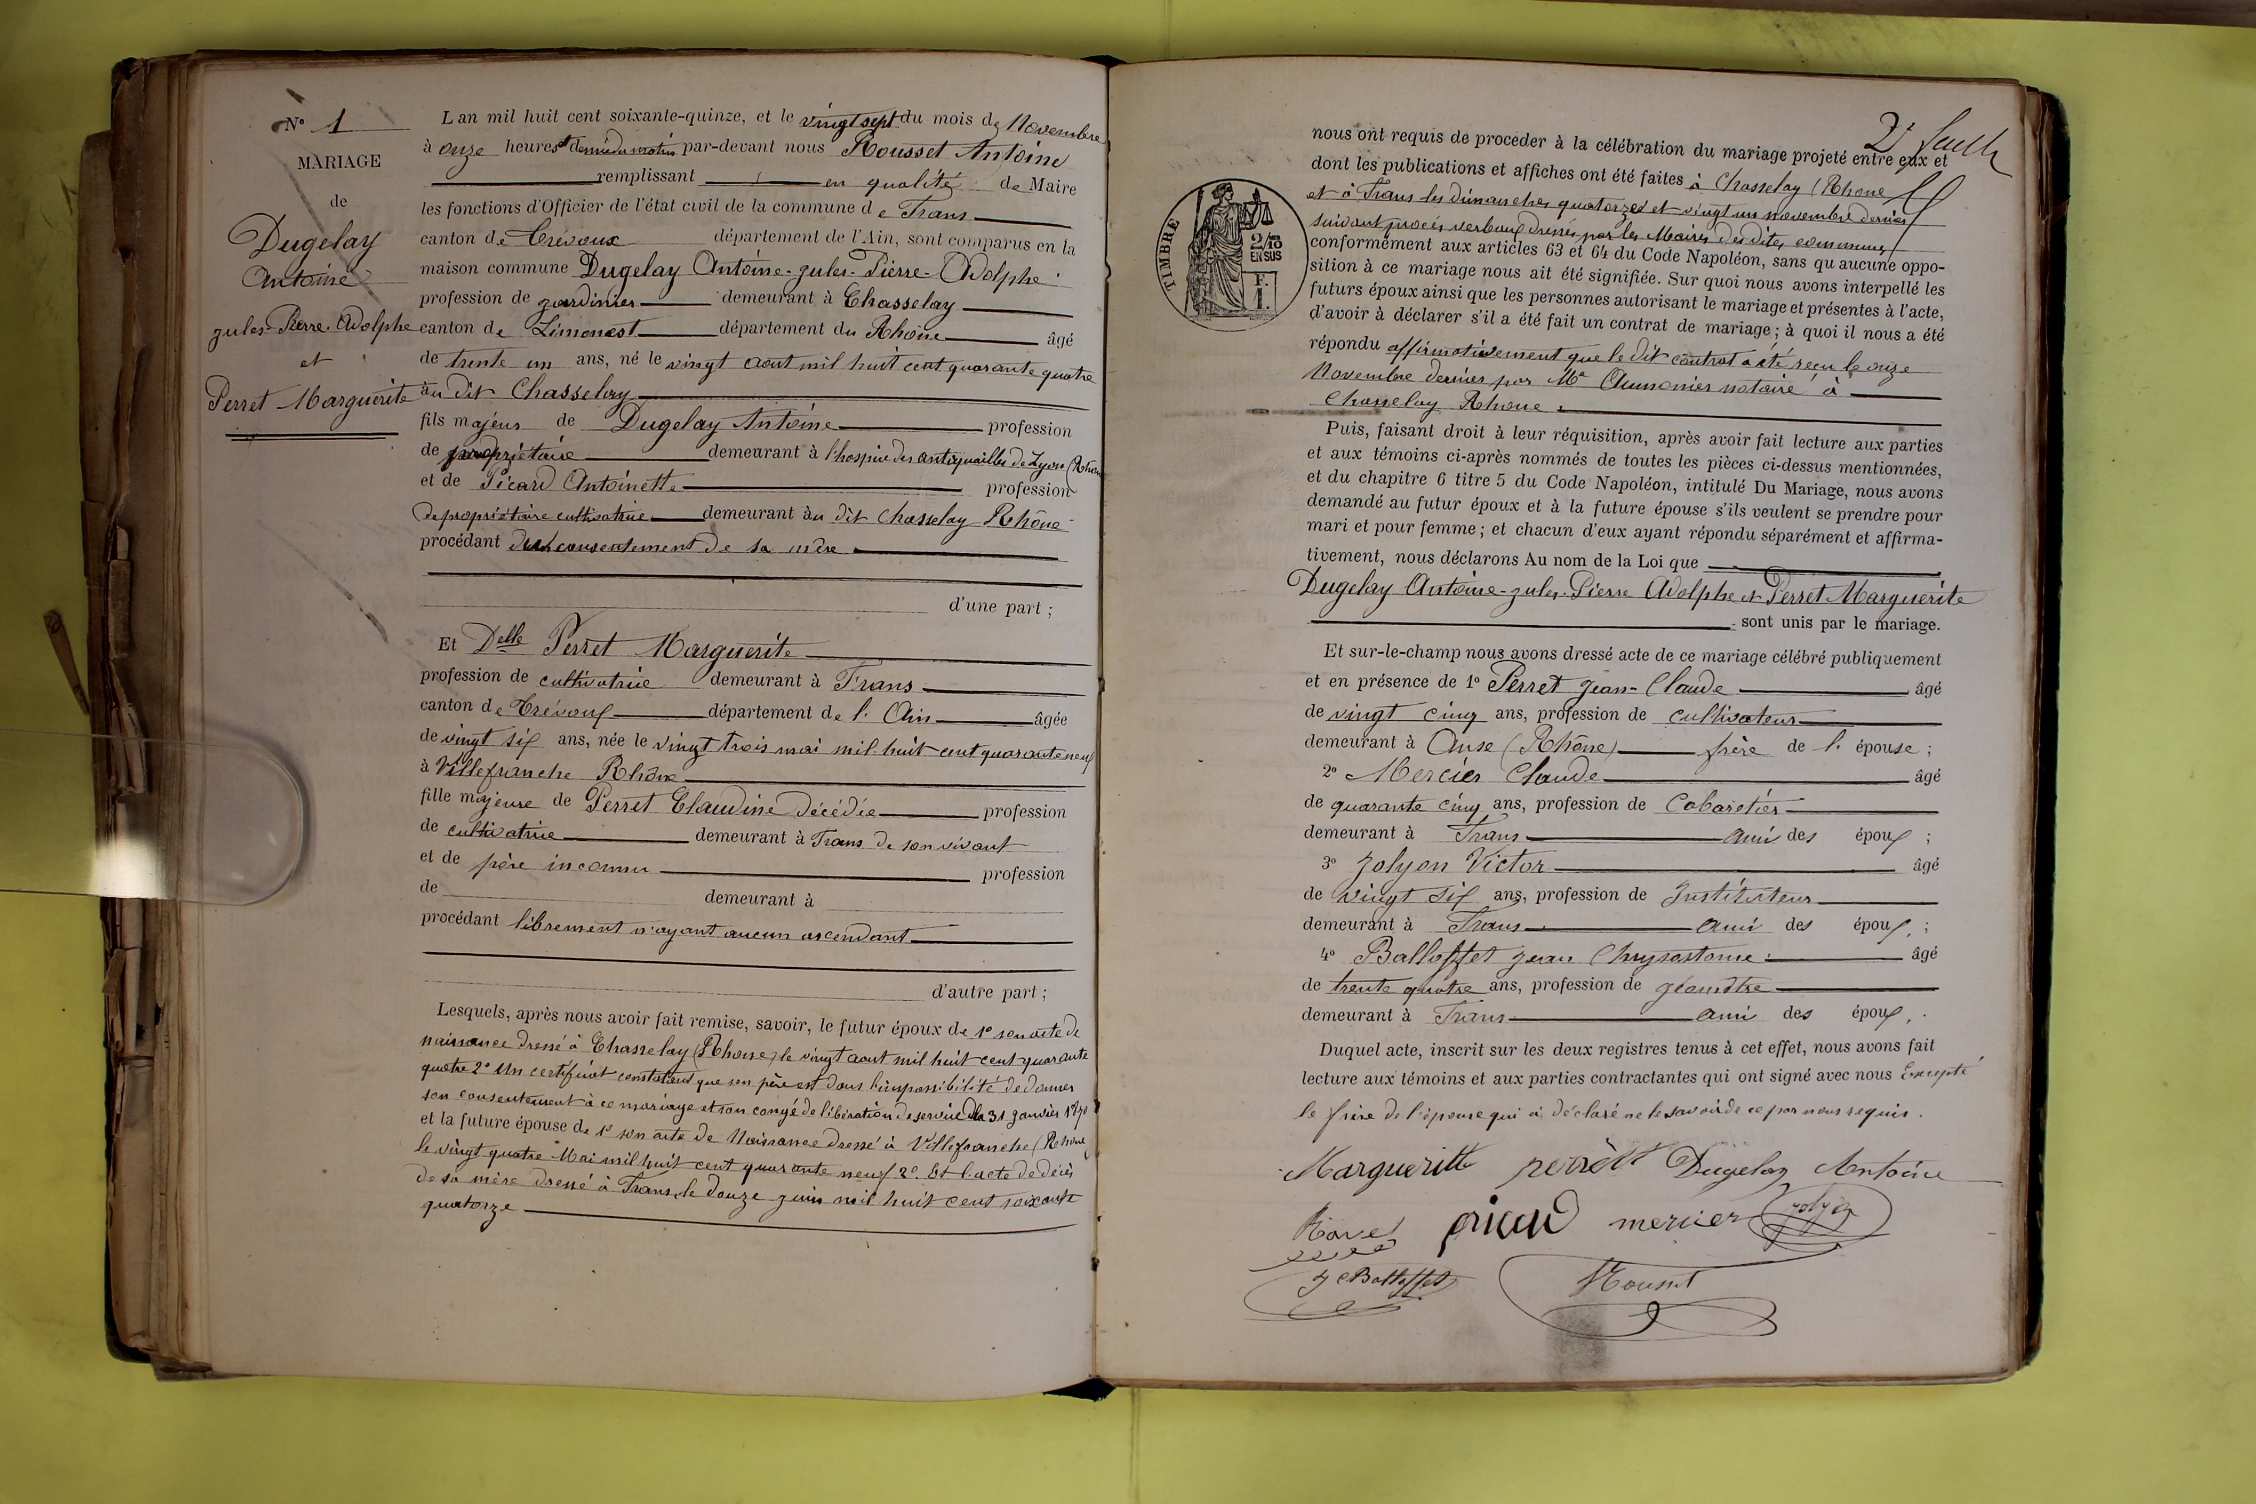 N° 1
MARIAGE
de
Dugelay
Antoine
Jules-Pierre-Adolphe
et
Perret Marguerite
L an mil huit cent soixante-quinze, et le vingt sept du mois de Novembre
à onze heures et demie du matin par-devant nous Rousset Antoine
remplissant en qualité de Maire
les fonctions d'Officier de l'état civil de la commune de Trans
canton de Trévoux département de l'Ain, sont comparus en la
maison commune Dugelay Antoine-Jules-Pierre-Adolphe
profession de jardinier demeurant à Chasselay
canton de Limonest département du Rhône âgé
de trente un ans, né le vingt aout mil huit cent quarante quatre
au dit Chasselay
fils majeur de Dugelay Antoine profession
de propriétaire demeurant à l'hospice des antiquailles de Lyon (Rhône
et de Picard Antoinette profession
de propriétaire cultivatrice demeurant au dit Chasselay Rhône
procédant du consentement de sa mère
d'une part ;
Et Delle Perret Marguerite
profession de cultivatrice demeurant à Trans
canton de Trévoux département de l'Ain âgée
de vingt six ans, née le vingt trois mai mil-huit-cent quarante neuf
à Villefranche Rhône
fille majeure de Perret Claudine décédée profession
de cultivatrice demeurant à Trans de son vivant
et de père inconnu profession
de demeurant à
procédant librement n'ayant aucun ascendant
d'autre part ;
Lesquels, après nous avoir fait remise, savoir, le futur époux de 1° son acte de
naissance dressé à Chasselay (Rhône) le vingt aout mil huit cent quarante
quatre 2° Un certificat constatant que son père est dans l'impossibilité de donner
son consentement à ce mariage et son congé de libération de service du 31 Janvier 1870
et la future épouse de 1° son acte de Naissance dressé à Villefranche (Rhône)
le vingt quatre Mai mil huit cent quarante neuf 2°. Et l'acte de décès
de sa mère dressé à Trans le douze juin mil huit cent soixante
quatorze
2e feuille
TIMBRE
2/10 EN SUS
F. 1.
nous ont requis de procéder à la célébration du mariage projeté entre eux et
dont les publications et affiches ont été faites à Chasselay (Rhône
et à Trans les dimanches quatorze et vingt un novembre dernier
suivant procès verbaux dressés par les Maires des dites communes
conformément aux articles 63 et 64 du Code Napoléon, sans qu aucune oppo-
sition à ce mariage nous ait été signifiée. Sur quoi nous avons interpellé les
futurs époux ainsi que les personnes autorisant le mariage et présentes à l'acte,
d'avoir à déclarer s'il a été fait un contrat de mariage ; à quoi il nous a été
répondu affirmativement que le dit contrat a été reçu le onze
Novembre dernier par Me Aumonier notaire à
Chasselay Rhône
Puis, faisant droit à leur réquisition, après avoir fait lecture aux parties
et aux témoins ci-après nommés de toutes les pièces ci-dessus mentionnées,
et du chapitre 6 titre 5 du Code Napoléon, intitulé Du Mariage, nous avons
demandé au futur époux et à la future épouse s'ils veulent se prendre pour
mari et pour femme ; et chacun d'eux ayant répondu séparément et affirma-
tivement, nous déclarons Au nom de la Loi que
Dugelay Antoine-Jules-Pierre Adolphe et Perret Marguerite
sont unis par le mariage.
Et sur-le-champ nous avons dressé acte de ce mariage célébré publiquement
et en présence de 1° Perret Jean-Claude âgé
de vingt cinq ans, profession de cultivateur
demeurant à Anse (Rhône) frère de l'épouse ;
2° Mercier Claude âgé
de quarante cinq ans, profession de Cabaretier
demeurant à Trans ami des époux ;
3° Jolyon Victor âgé
de vingt six ans, profession de Instituteur
demeurant à Trans ami des époux ;
4° Balloffet Jean Chrysostome âgé
de trente quatre ans, profession de géomètre
demeurant à Trans ami des époux.
Duquel acte, inscrit sur les deux registres tenus à cet effet, nous avons fait
lecture aux témoins et aux parties contractantes qui ont signé avec nous Excepté
le frère de l'épouse qui a déclaré ne le savoir de ce par nous requis.
Margueritte perrett Dugelay Antoine
picard mercier Jolyon
J C Balloffet Rousset